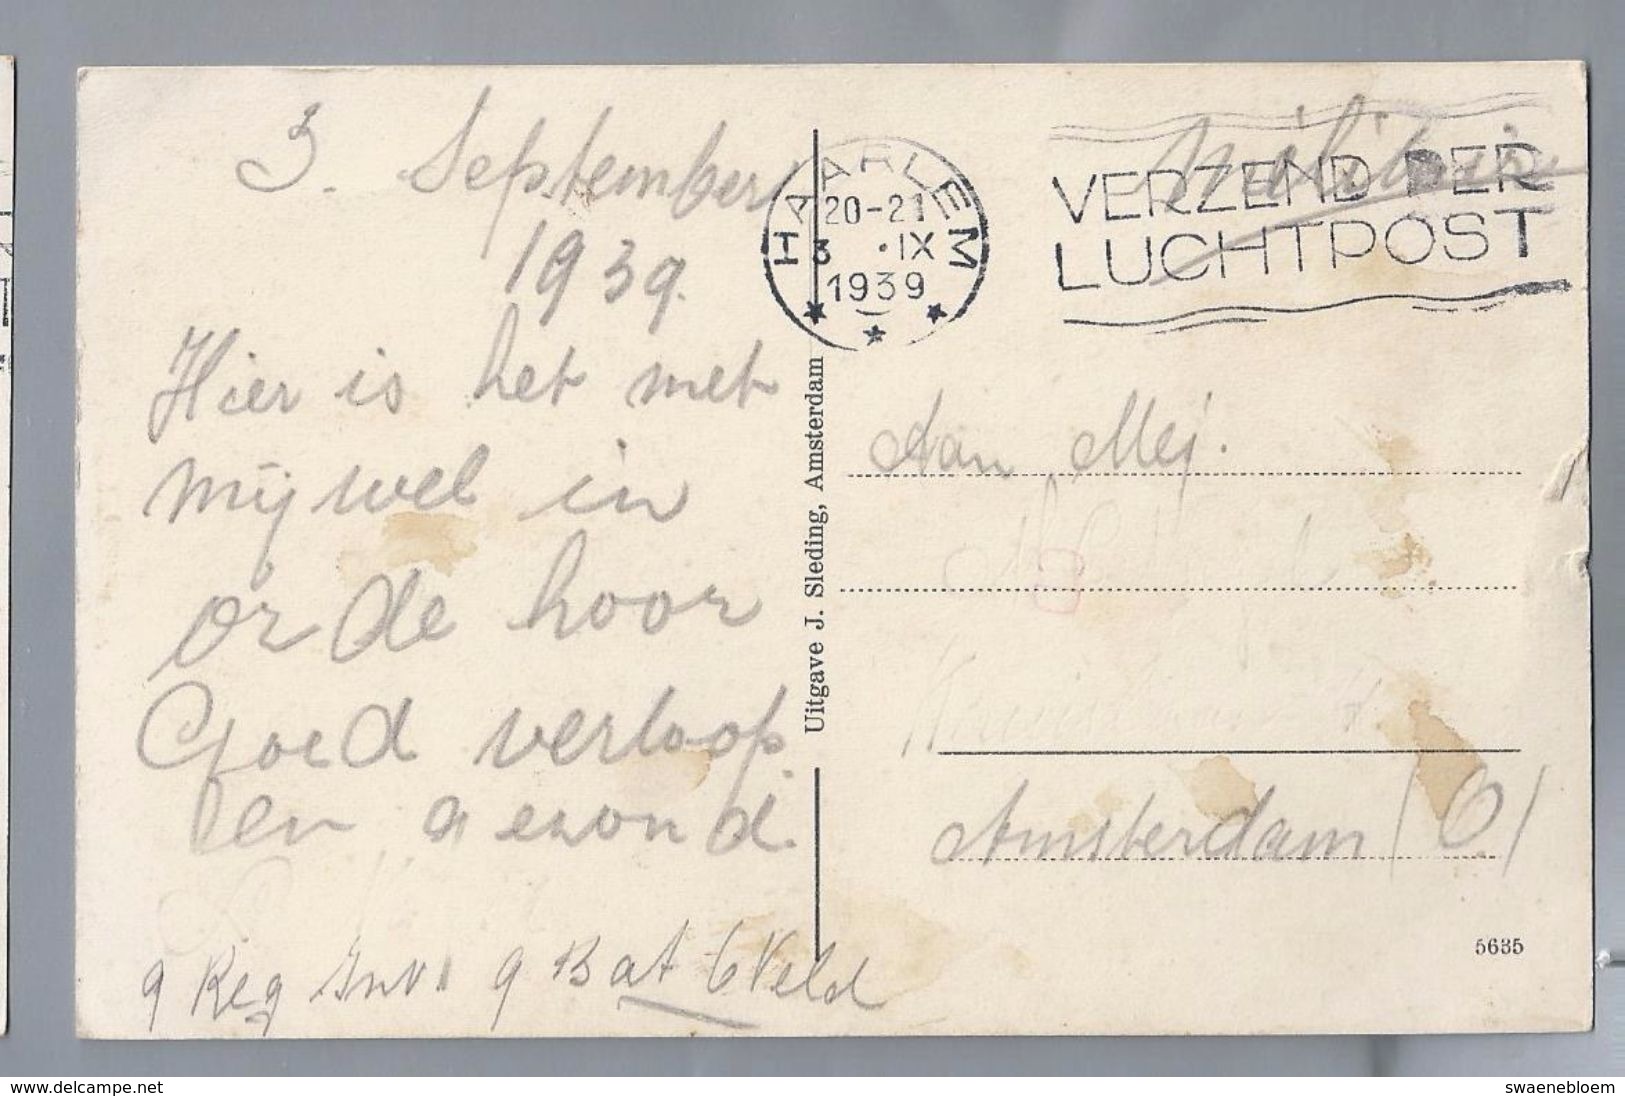 3. September
1939.
Hier is het met
mij wel in
orde hoor
Goed verloop.
en gezond.
9 Reg 9 Bat 6 Veld
Uitgave J. Sleding, Amsterdam
HAARLEM
20-21
3 .IX
1939
VERZEND PER
LUCHTPOST
Militair
Aan Mej.
Amsterdam (O)
5635
www.delcampe.net
swaenebloem